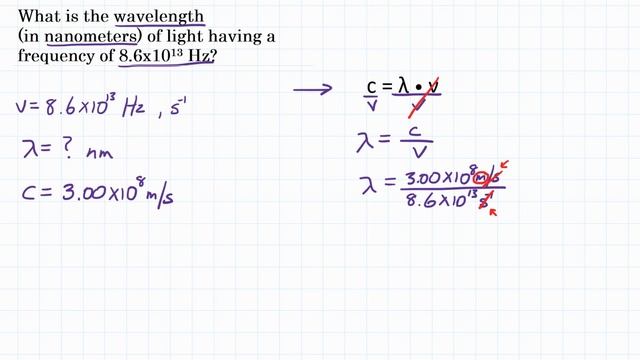 What is the wavelength
(in nanometers) of light having a
frequency of 8.6x10¹³ Hz?
ν = 8.6 × 10¹³ Hz , s⁻¹
λ = ? nm
c = 3.00 × 10⁸ m/s
c = λ • ν
ν ν
λ = c/ν
λ = 3.00 × 10⁸ m/s
8.6 × 10¹³ s⁻¹